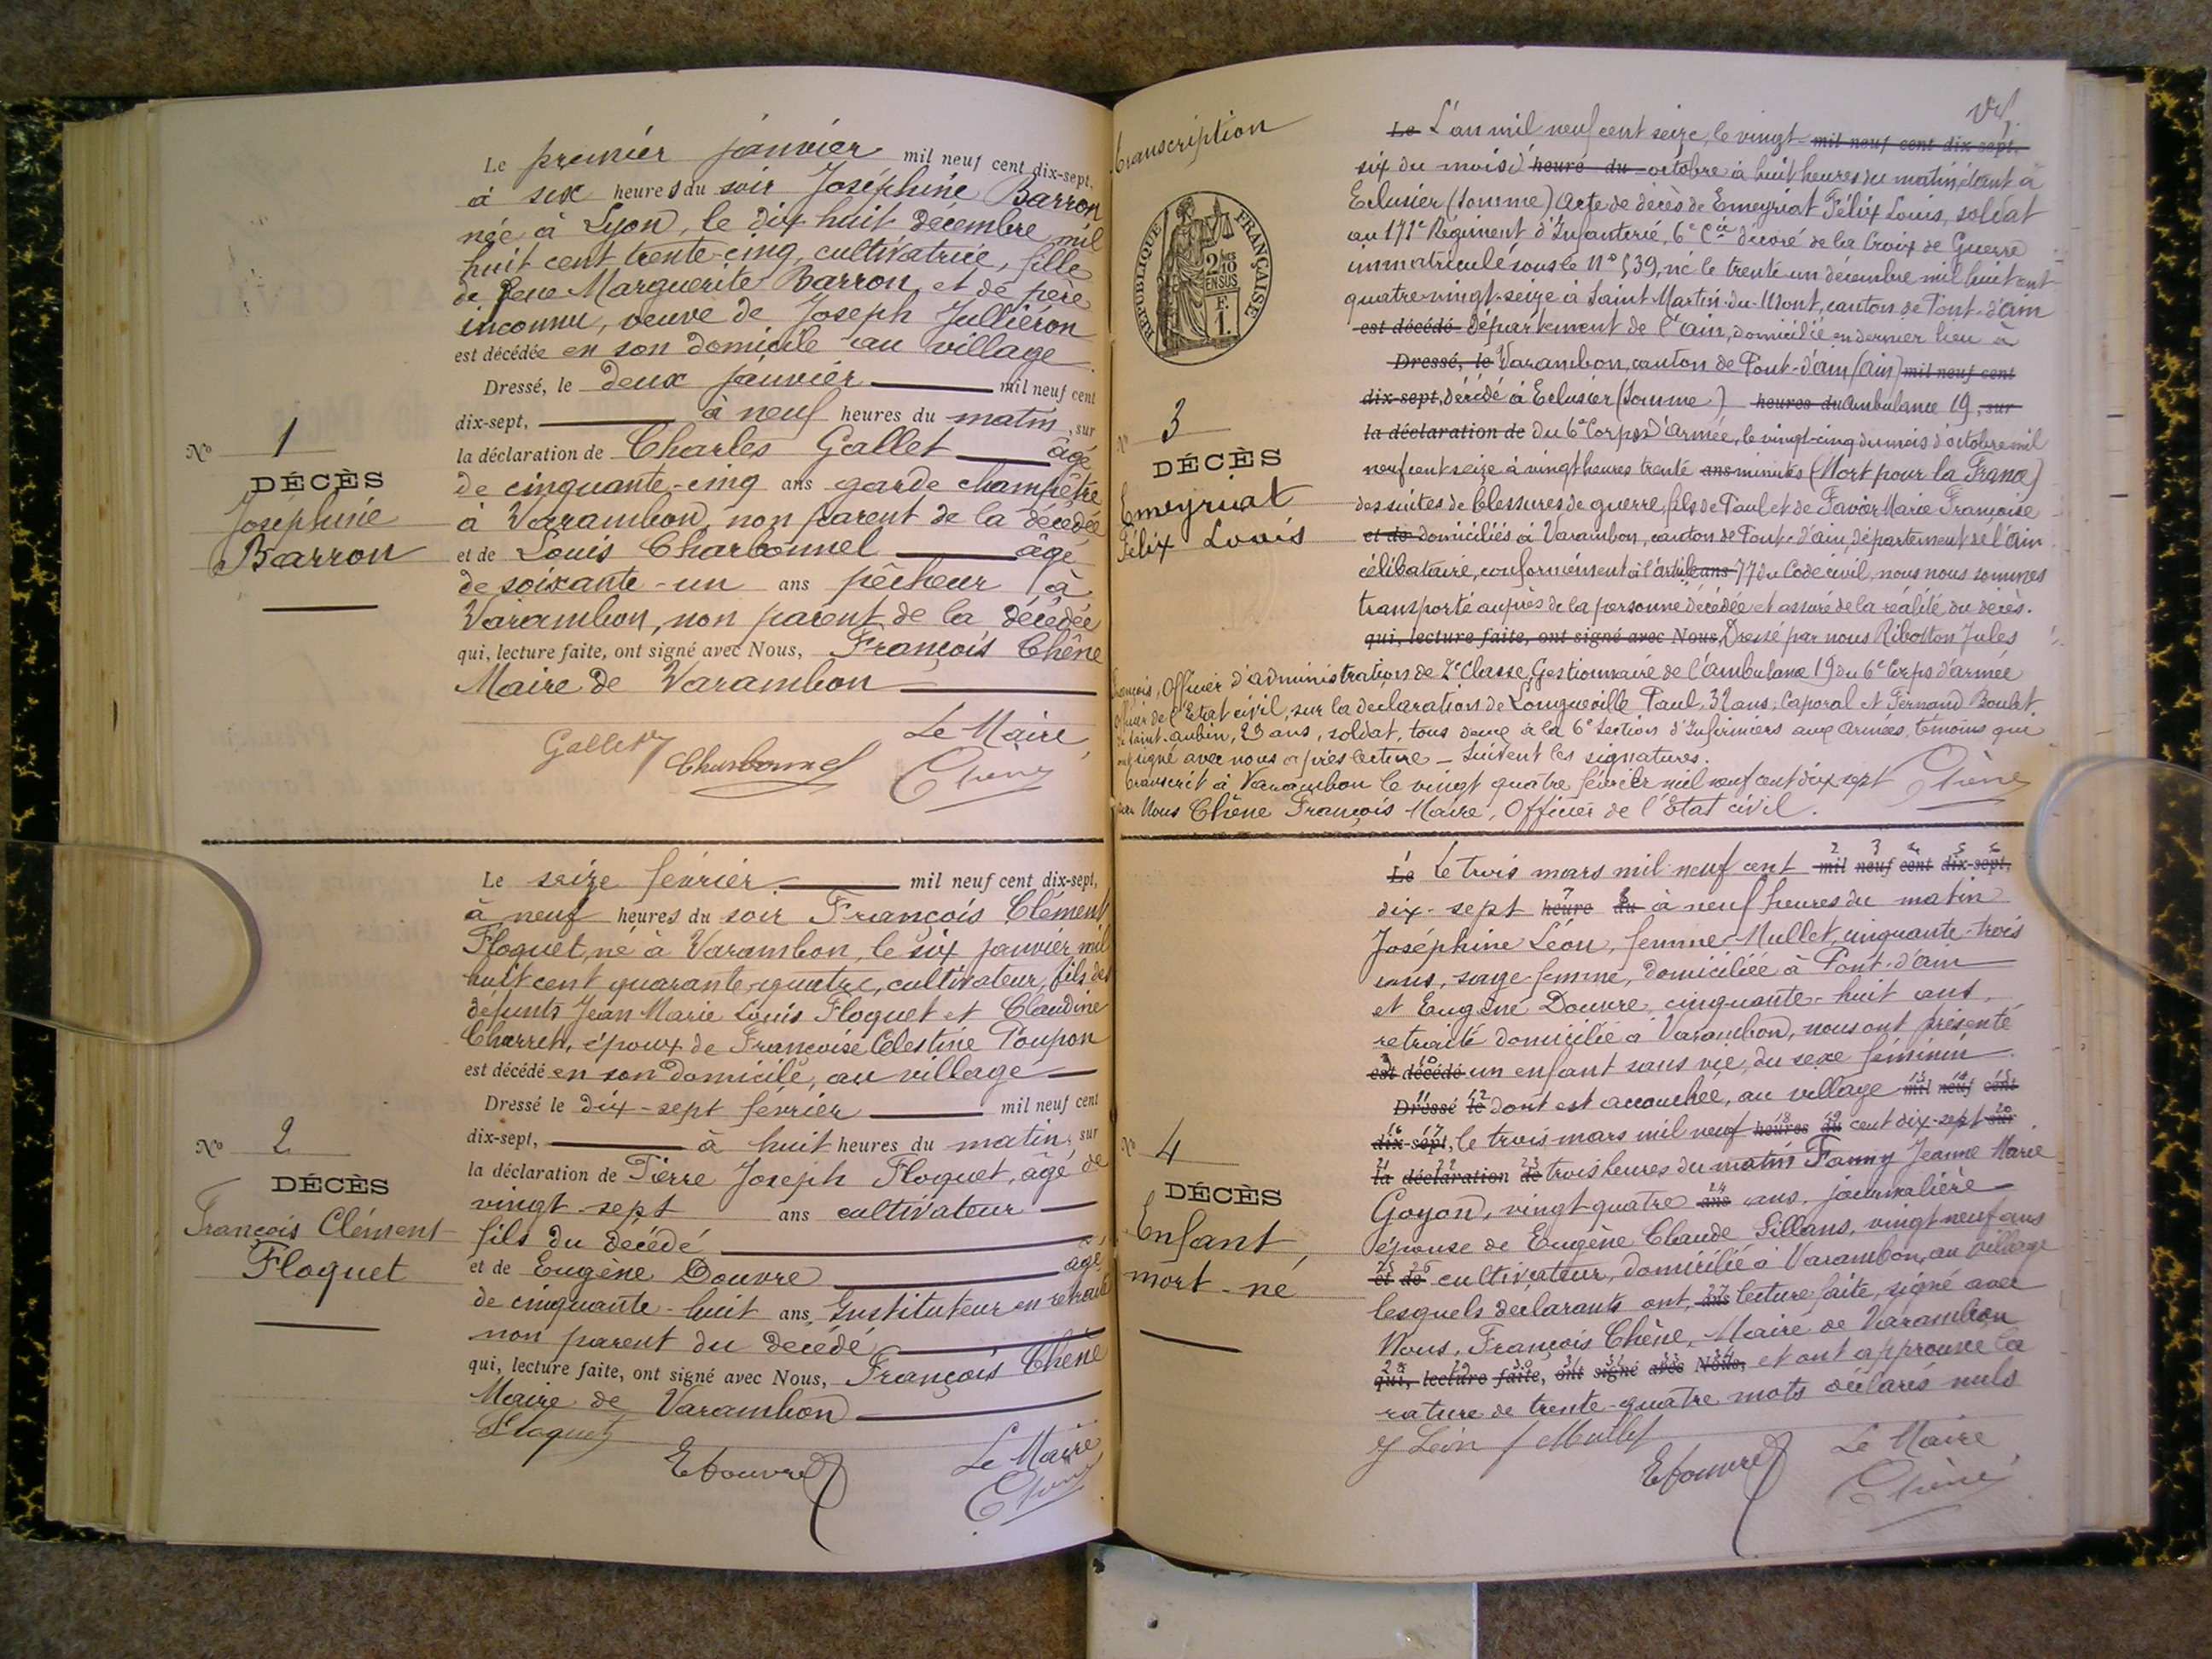 Le premier janvier mil neuf cent dix-sept,
à six heures du soir Joséphine Barron
née à Lyon, le dix huit décembre mil
huit cent trente-cinq, cultivatrice, fille
de feue Marguerite Barron, et de père
inconnu, veuve de Joseph Jullièron
est décédée en son domicile au village
Dressé, le deux janvier mil neuf cent
dix-sept, à neuf heures du matin, sur
la déclaration de Charles Gallet âgé
de cinquante-cinq ans garde champêtre
à Varambon, non parent de la décédée
et de Louis Charbonnel âgé
de soixante-un ans pêcheur à
Varambon, non parent de la décédée
qui, lecture faite, ont signé avec Nous, François Chêne
Maire de Varambon
Le Maire,
Gallet Charbonnel Chêne
N° 1
DÉCÈS
Joséphine
Barron
Le seize février mil neuf cent dix-sept,
à neuf heures du soir François Clément
Floquet, né à Varambon, le six janvier mil
huit cent quarante-quatre, cultivateur, fils des
défunts Jean Marie Louis Floquet et Claudine
époux de Françoise Célestine Poupon
est décédé en son domicile, au village
Dressé le dix-sept février mil neuf cent
dix-sept, à huit heures du matin, sur
la déclaration de Pierre Joseph Floquet, âgé de
vingt-sept ans cultivateur
fils du décédé
et de Eugène Douvre âgé
de cinquante-huit ans, Instituteur en retraite
non parent du décédé
qui, lecture faite, ont signé avec Nous, François Chêne
Maire de Varambon
Floquet
EDouvre
Le Maire
Chêne
N° 2
DÉCÈS
François Clément
Floquet
transcription
RÉPUBLIQUE FRANÇAISE
2/10
EN SUS
F.
1.
N° 3
DÉCÈS
Emeyriat
Félix Louis
Le L'an mil neuf cent seize, le vingt-mil neuf cent dix-sept,
six du mois d'heure du octobre à huit heures du matin, étant à
Eclusier (Somme) Acte de décès de Emeyriat Félix Louis, soldat
au 171e Régiment d'Infanterie, 6e Cie décoré de la Croix de Guerre
immatriculé sous le N° 539, né le trente-un décembre mil huit cent
quatre-vingt-seize à Saint-Martin-du-Mont, canton de Pont-d'ain
est décédé département de l'ain, domicilié en dernier lieu à
Dressé, le Varambon, canton de Pont-d'ain (ain) mil neuf cent
dix-sept, décédé à Eclusier (Somme) heures du Ambulance 19, sur
la déclaration de du 6e Corps d'Armée, le vingt-cinq du mois d'octobre mil
neuf cent seize à vingt heures trente ans minutes (Mort pour la France)
des suites de blessures de guerre, fils de Paul et de Favier Marie Françoise
et de domiciliés à Varambon, canton de Pont-d'ain, département de l'ain
célibataire, conformément à l'article ans 77 du Code civil, nous nous sommes
transporté auprès de la personne décédée et assuré de la réalité du décès.
qui, lecture faite, ont signé avec Nous, Dressé par nous Jules
François, Officier d'administration de 2e Classe, Gestionnaire de l'ambulance 19 du 6e Corps d'armée
officier de l'Etat civil, sur la déclaration de Longueville Paul, 32 ans, Caporal et Fernand Boulet
de Saint-Aubin, 23 ans, soldat, tous deux à la 6e Section d'Infirmiers aux armées, témoins qui
ont signé avec nous après lecture – Suivent les signatures.
Transcrit à Varambon le vingt quatre février mil neuf cent dix sept
par Nous Chêne François Maire, Officier de l'Etat civil.
Chêne
N° 4
DÉCÈS
Enfant
mort-né
Le Le trois mars mil neuf cent mil neuf cent dix-sept,
dix-sept heure du à neuf heures du matin
Joséphine Léon, femme Mullet, cinquante-trois
ans, sage-femme, domiciliée à Pont-d'ain
et Eugène Douvre, cinquante-huit ans,
retraité domicilié à Varambon, nous ont présenté
est décédé un enfant sans vie, du sexe féminin
Dressé le dont est accouchée, au village mil neuf cent
dix-sept, le trois mars mil neuf heures du cent dix-sept sur
la déclaration de trois heures du matin Fanny Jeanne Marie
Goyon, vingt-quatre ans ans, journalière
épouse de Eugène Claude Sillans, vingt neuf ans
et de cultivateur, domicilié à Varambon, au village
lesquels déclarants ont, ans lecture faite, signé avec
Nous, François Chêne, Maire de Varambon
qui, lecture faite, ont signé avec Nous, et ont approuvé la
rature de trente-quatre mots déclarés nuls
J Léon f Mullet
EDouvre
Le Maire
Chêne